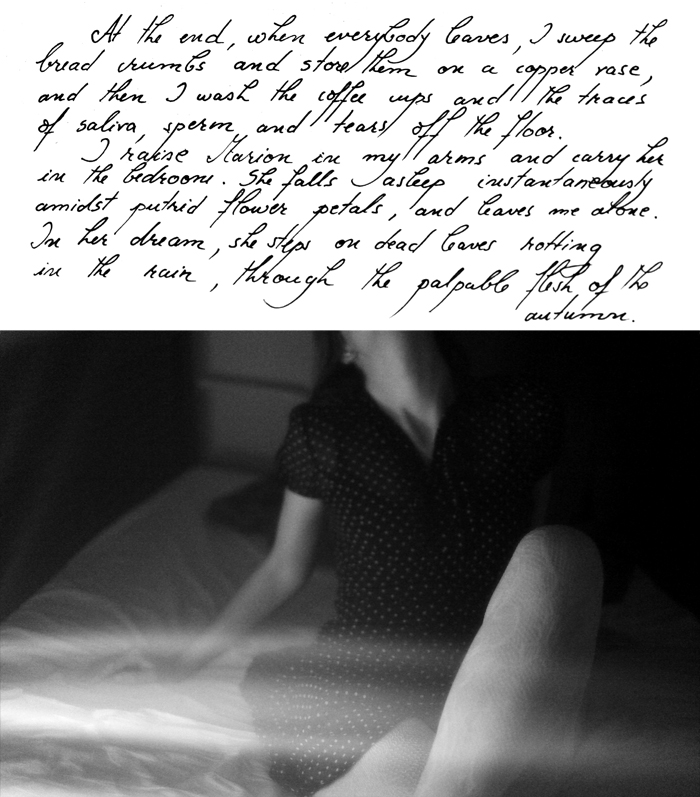 At the end, when everybody leaves, I sweep the
bread crumbs and store them on a copper vase,
and then I wash the coffee cups and the traces
of saliva, sperm, and tears off the floor.
I raise Marion in my arms and carry her
in the bedroom. She falls asleep instantaneously
amidst putrid flower petals, and leaves me alone.
In her dream, she steps on dead leaves rotting
in the rain, through the palpable flesh of the
autumn.